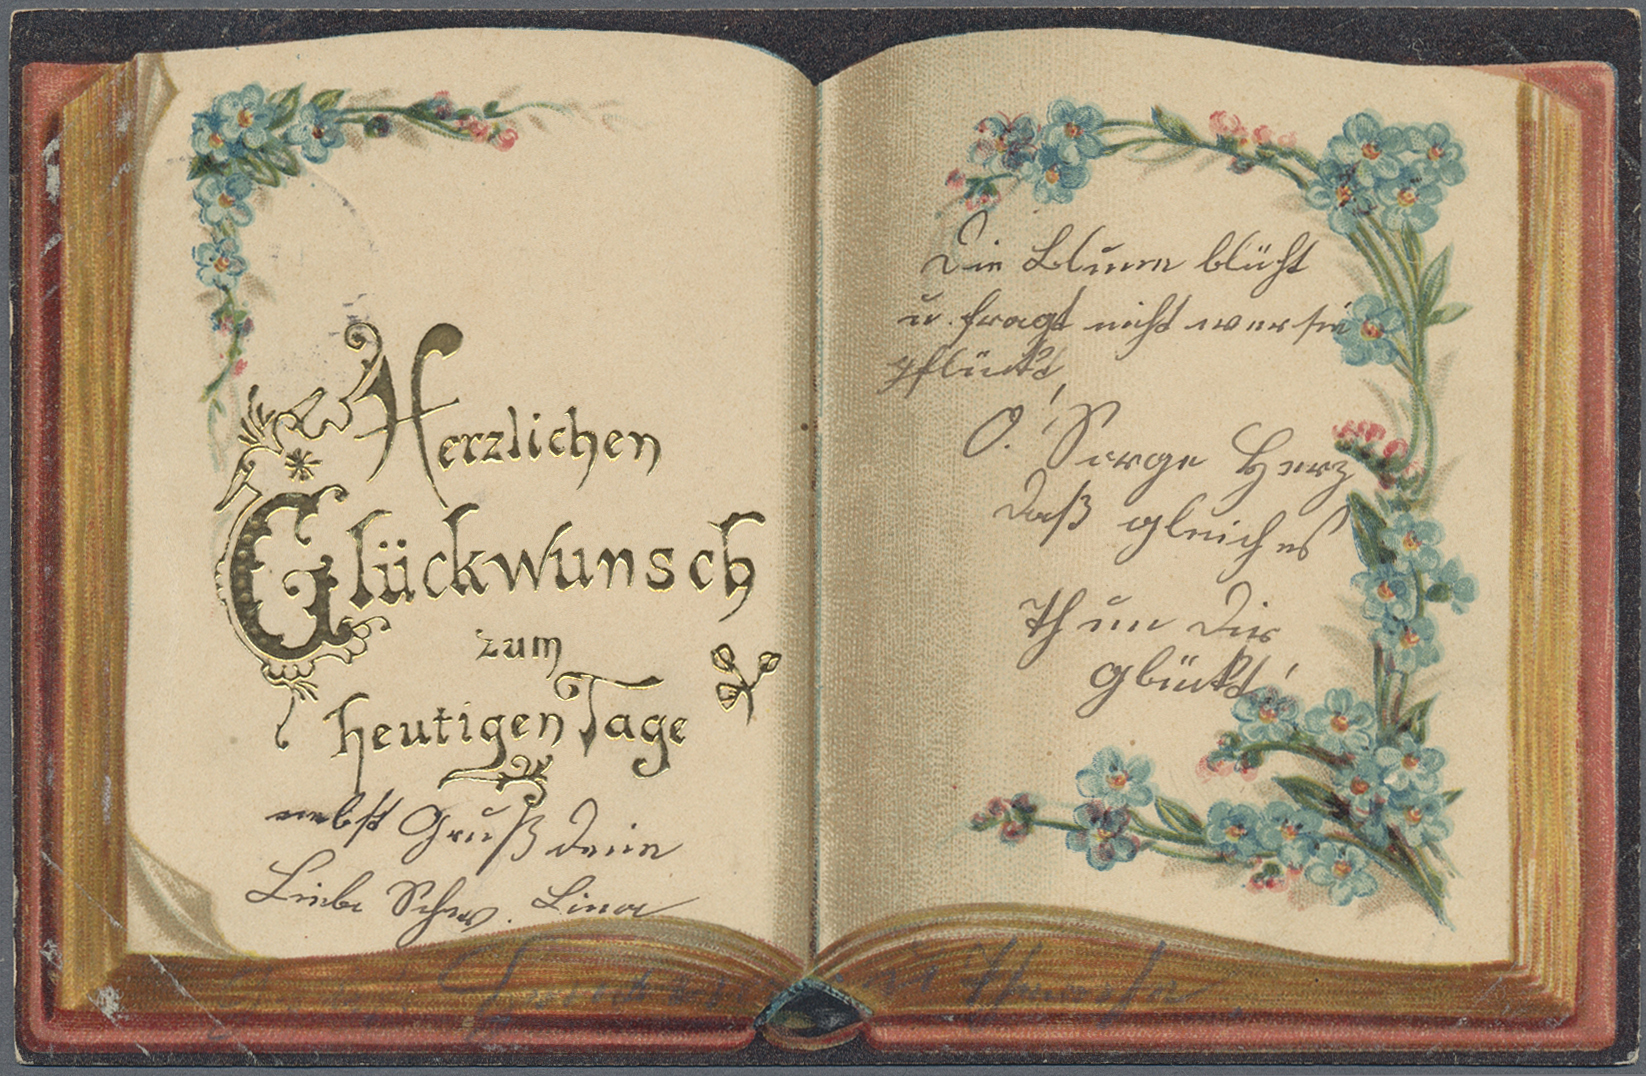 Herzlichen
Glückwunsch
zum
heutigen Tage
nebst Gruß deine
Liebe Schw. Lina
Die Blume blüht
u. fragt nicht wer sie
pflückt!
O! Sorge Herz
daß gleich es
Thun dir
glückt!